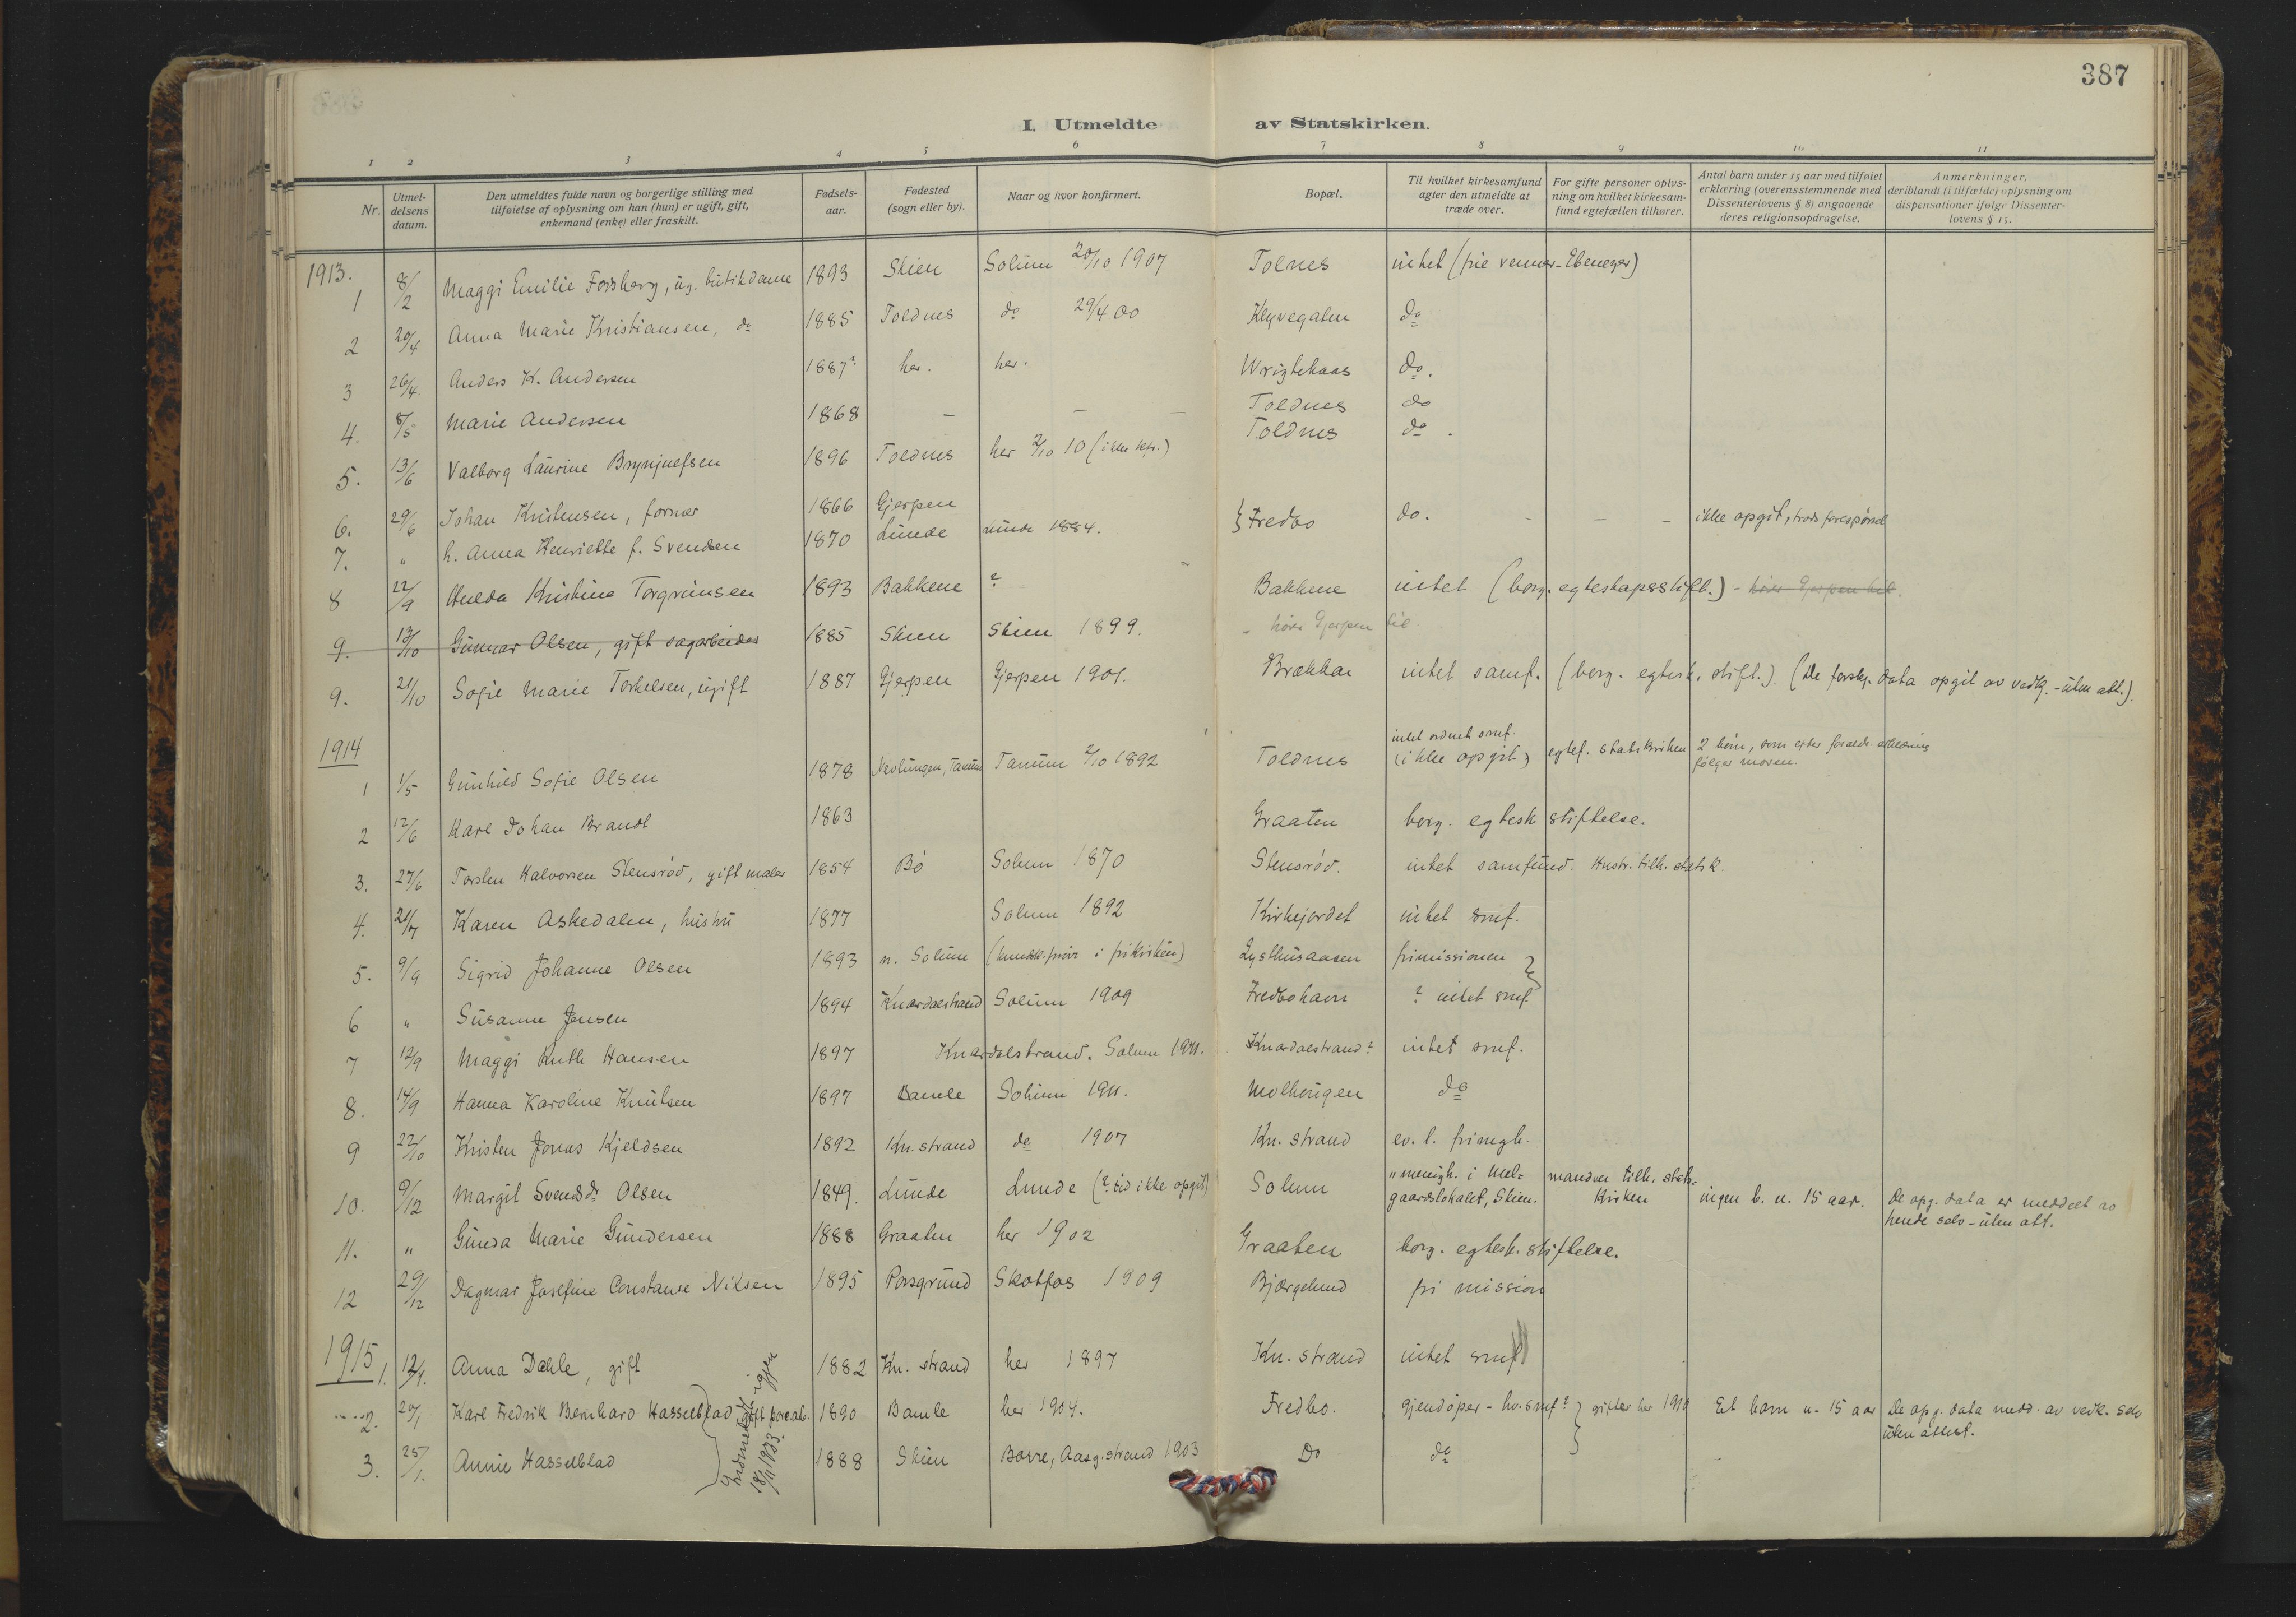 387
I. Utmeldte av Statskirken.
1 2 3 4 5 6 7 8 9 10 11
Nr. | Utmeldelsens datum. | Den utmeldtes fulde navn og borgerlige stilling med tilføielse af oplysning om han (hun) er ugift, gift, enkemand (enke) eller fraskilt. | Fødsels-aar. | Fødested (sogn eller by). | Naar og hvor konfirmert. | Bopæl. | Til hvilket kirkesamfund agter den utmeldte at træde over. | For gifte personer oplysning om hvilket kirkesamfund egtefællen tilhører. | Antal barn under 15 aar med tilføiet erklæring (overensstemmende med Dissenterlovens § 8) angaaende deres religionsopdragelse. | Anmerkninger, deriblandt (i tilfælde) oplysning om dispensationer ifølge Dissenterlovens § 15.
1913.
1 8/2 Maggi Emilie Forsberg, ug. butikdame 1893 Skien Solum 20/10 1907 Tolnes intet (frie venner - Ebeneser)
2 20/4 Anna Marie Kristiansen, do 1885 Toldnes do 29/4 00 Klyvegaten do
3 26/4 Anders K. Andersen 1887? her. her. Wrigtehaas do.
4. 8/5 Marie Andersen 1868 – – – Toldnes do
5. 13/6 Valborg Laurine Brynjuefsen 1896 Toldnes her 2/10 10 (ikke kfr.) Toldnes do.
6. 29/6 Johan Kristensen, former 1866 Gjerpen } Fredbo do. – – – ikke opgit, trods forespørsel
7. " h. Anna Henriette f. Svendsen 1870 Lunde Lunde 1884.
8 22/9 Hulda Kristine Torgrimsen 1893 Bakkene ? Bakkene intet (borg. egteskapsstift.) - hører Gjerpen til.
9. 13/10 Gunnar Olsen, gift sagarbeider 1885 Skien Skien 1899. " hører Gjerpen til.
9. 21/10 Sofie Marie Torkelsen, ugift 1887 Gjerpen Gjerpen 1901. Brækkan intet samf. (borg. egtesk. stift.). (De forskj. data opgit av vedk. - uten att.)
1914
1 1/5 Gunhild Sofie Olsen 1878 Nevlungen, Tanum Tanum 2/10 1892 Toldnes intet ordnet smf. (ikke opgit) egtef. statskirken 2 børn, som efter foreldr. erklæring følger moren.
2 12/6 Karl Johan Brandt 1863 Graaten borg. egtesk stiftelse.
3. 27/6 Torsten Halvorsen Stensrød, gift maler 1854 Bø Solum 1870 Stensrød. intet samfund. Hustr. tilh. statsk.
4. 21/7 Karen Askedalen, hustru 1877 Solum 1892 Kirkejordet intet smf.
5. 9/9 Sigrid Johanne Olsen 1893 n. Solum (kundsk.prøve i frikirken) Lysthusaasen frimissionen }?
6 " Susanne Jensen 1894 Knardalstrand Solum 1909 Fredbohavn ? intet smf.
7 12/9 Maggi Ruth Hansen 1897 Knardalstrand. Solum 1911. Knardalstrand? intet smf.
8. 14/9 Hanna Karoline Knutsen 1897 Bamle Solum 1911. Molhougen do
9 22/10 Kristen Jonas Kjeldsen 1892 Kn. strand do 1907 Kn. strand ev. l. frimgh.
10. 9/12 Margit Svendsdr Olsen 1849. Lunde Lunde (? tid ikke opgit) Solum " menigh. i Melgaardslokalet, Skien. manden tilh. statskirken ingen b. u. 15 aar. De opg. data er meddelt av hende selv - uten att.
11. " Gunda Marie Gundersen 1888 Graaten her 1902 Graaten borg. egtesk. stiftelse.
12 29/12 Dagmar Josefine Constanse Nilsen 1895 Porsgrund Skotfos 1909 Bjørgelund fri mission
1915
1. 12/1. Anna Dahle, gift 1882 Kn. strand her 1897 Kn. strand intet smf
2. 20/1 Karl Fredrik Bernhard Hasselblad, gift 1890 Bamle her 1904. Fredbo. gjendøper - hv. smf? } gifter her 1910 Et barn u. 15 aar De opg. data medd. av vedk. selv uten attest.
3. 25/1. Annie Hasselblad 1888 Skien Borre, Aasg.strand 1903 Do do
Indmeldt igjen 18/11 1923